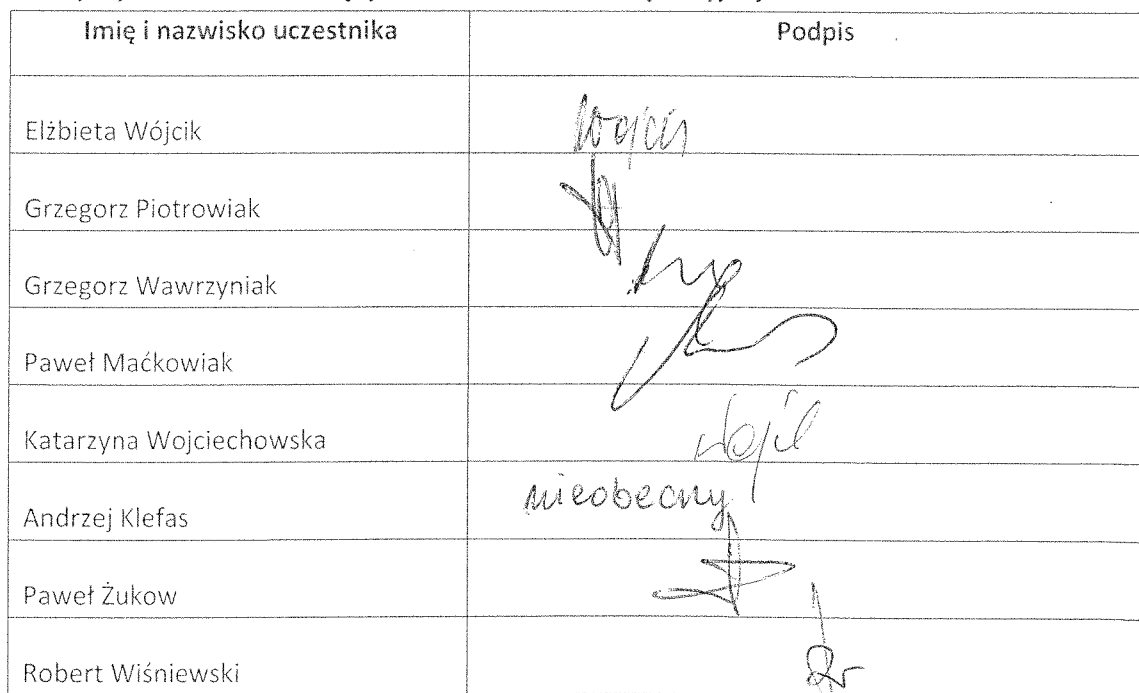 Imię i nazwisko uczestnika Podpis
Elżbieta Wójcik Wójcik
Grzegorz Piotrowiak
Grzegorz Wawrzyniak
Paweł Maćkowiak
Katarzyna Wojciechowska
Andrzej Klefas nieobecny
Paweł Żukow
Robert Wiśniewski